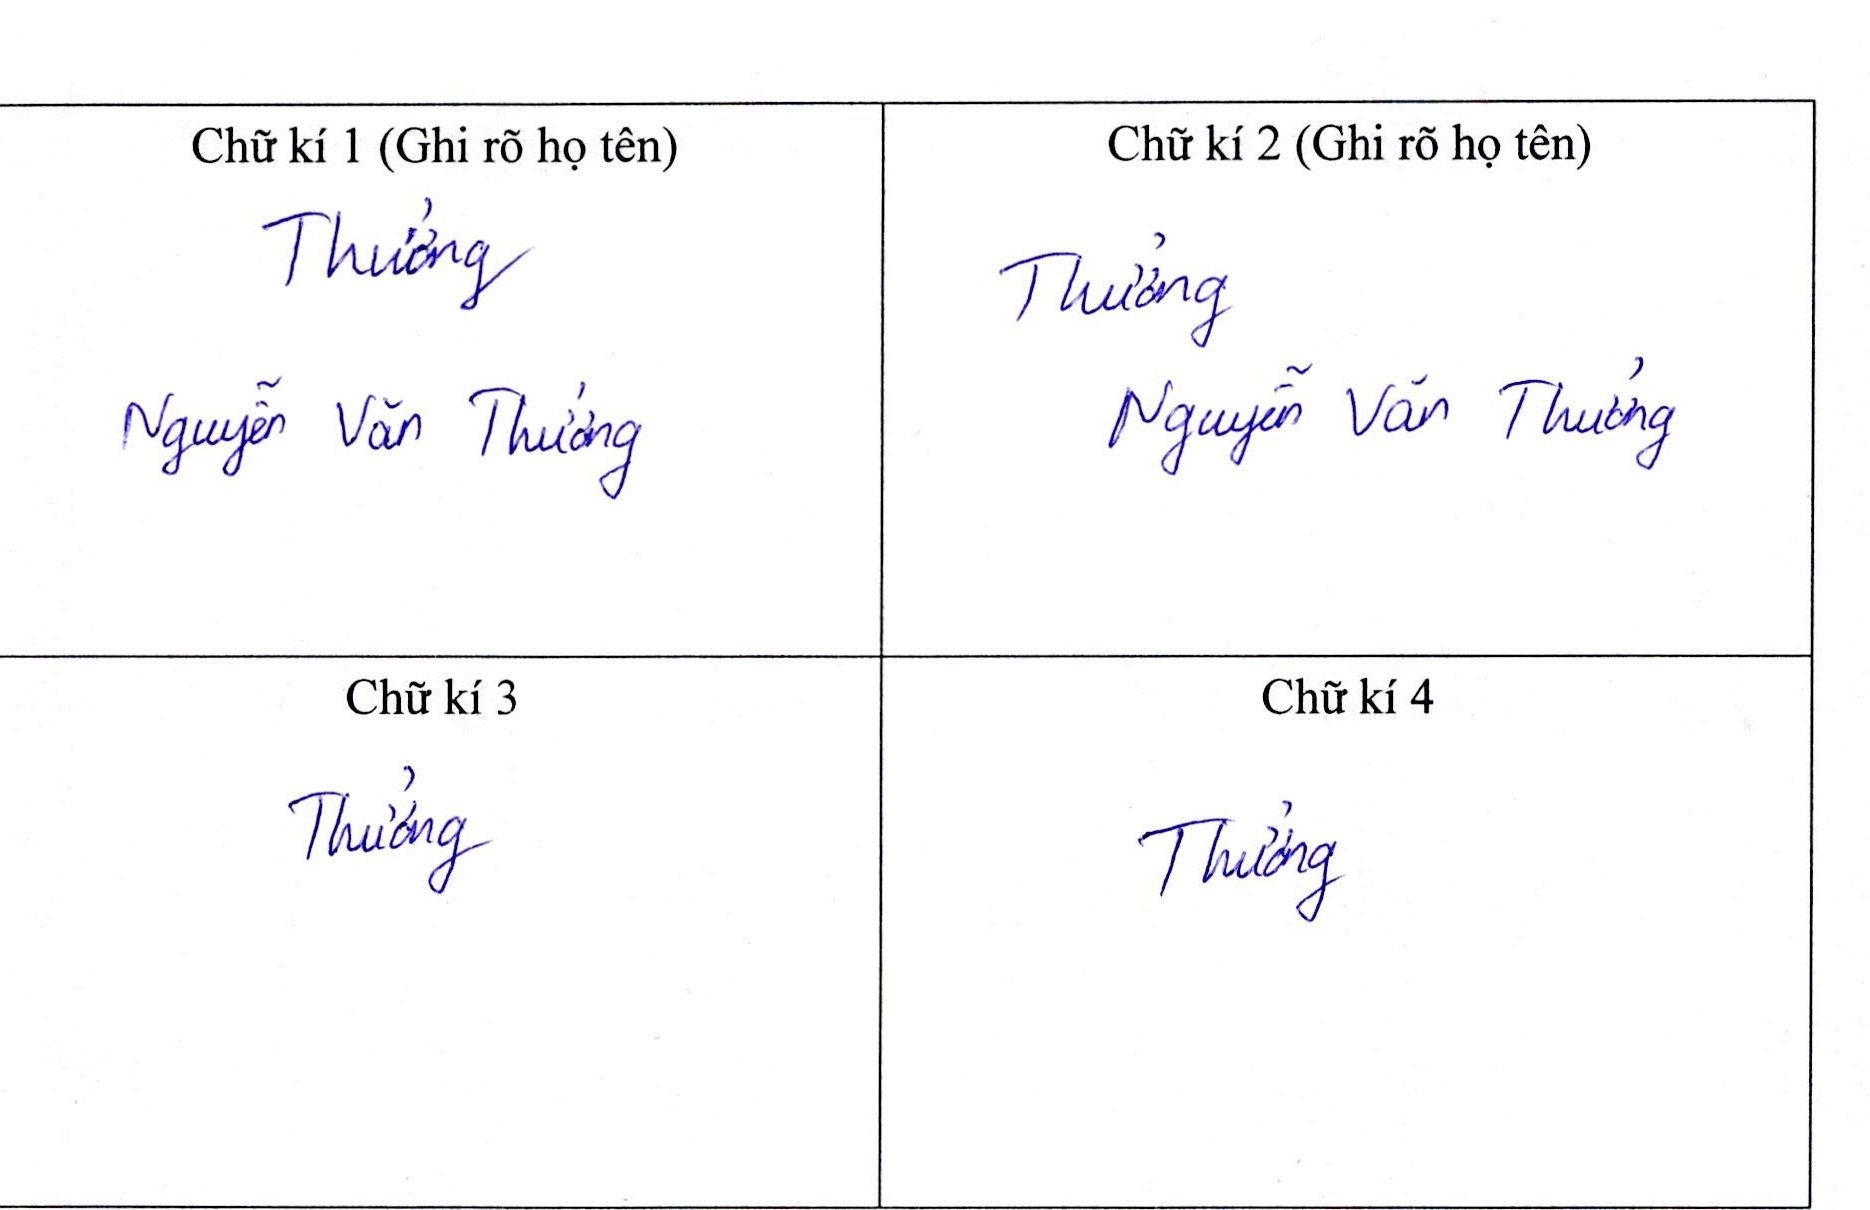 Chữ kí 1 (Ghi rõ họ tên)
Thưởng
Nguyễn Văn Thưởng
Chữ kí 2 (Ghi rõ họ tên)
Thưởng
Nguyễn Văn Thưởng
Chữ kí 3
Thưởng
Chữ kí 4
Thưởng